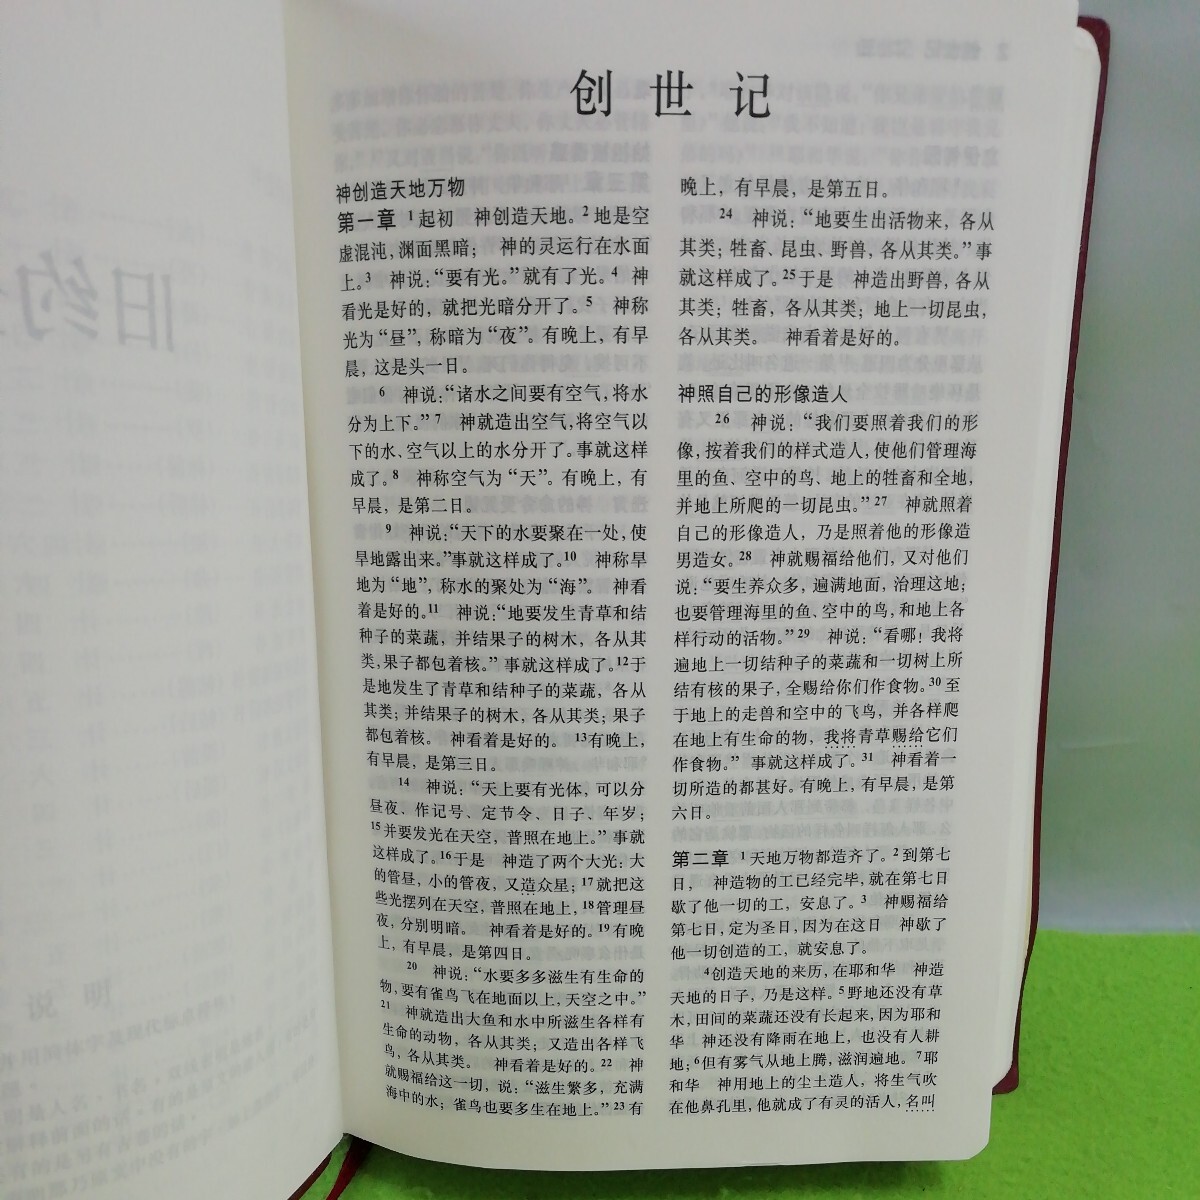 创世记
神创造天地万物
第一章 1起初　神创造天地。2地是空
虚混沌，渊面黑暗；　神的灵运行在水面
上。3　神说：“要有光。”就有了光。4　神
看光是好的，就把光暗分开了。5　神称
光为“昼”，称暗为“夜”。有晚上，有早
晨，这是头一日。
6　神说：“诸水之间要有空气，将水
分为上下。”7　神就造出空气，将空气以
下的水、空气以上的水分开了。事就这样
成了。8　神称空气为“天”。有晚上，有
早晨，是第二日。
9　神说：“天下的水要聚在一处，使
旱地露出来。”事就这样成了。10　神称旱
地为“地”，称水的聚处为“海”。　神看
着是好的。11　神说：“地要发生青草和结
种子的菜蔬，并结果子的树木，各从其
类，果子都包着核。”事就这样成了。12于
是地发生了青草和结种子的菜蔬，各从
其类；并结果子的树木，各从其类；果子
都包着核。　神看着是好的。13有晚上，
有早晨，是第三日。
14　神说：“天上要有光体，可以分
昼夜、作记号、定节令、日子、年岁；
15并要发光在天空，普照在地上。”事就
这样成了。16于是　神造了两个大光：大
的管昼，小的管夜，又造众星；17就把这
些光摆列在天空，普照在地上，18管理昼
夜，分别明暗。　神看着是好的。19有晚
上，有早晨，是第四日。
20　神说：“水要多多滋生有生命的
物，要有雀鸟飞在地面以上，天空之中。”
21　神就造出大鱼和水中所滋生各样有
生命的动物，各从其类；又造出各样飞
鸟，各从其类。　神看着是好的。22　神
就赐福给这一切，说：“滋生繁多，充满
海中的水；雀鸟也要多生在地上。”23有
晚上，有早晨，是第五日。
24　神说：“地要生出活物来，各从
其类；牲畜、昆虫、野兽，各从其类。”事
就这样成了。25于是　神造出野兽，各从
其类；牲畜，各从其类；地上一切昆虫，
各从其类。　神看着是好的。
神照自己的形像造人
26　神说：“我们要照着我们的形
像，按着我们的样式造人，使他们管理海
里的鱼、空中的鸟、地上的牲畜和全地，
并地上所爬的一切昆虫。”27　神就照着
自己的形像造人，乃是照着他的形像造
男造女。28　神就赐福给他们，又对他们
说：“要生养众多，遍满地面，治理这地；
也要管理海里的鱼、空中的鸟，和地上各
样行动的活物。”29　神说：“看哪！我将
遍地上一切结种子的菜蔬和一切树上所
结有核的果子，全赐给你们作食物。30至
于地上的走兽和空中的飞鸟，并各样爬
在地上有生命的物，我将青草赐给它们
作食物。”事就这样成了。31　神看着一
切所造的都甚好。有晚上，有早晨，是第
六日。
第二章 1天地万物都造齐了。2到第七
日，　神造物的工已经完毕，就在第七日
歇了他一切的工，安息了。3　神赐福给
第七日，定为圣日，因为在这日　神歇了
他一切创造的工，就安息了。
4创造天地的来历，在耶和华　神造
天地的日子，乃是这样。5野地还没有草
木，田间的菜蔬还没有长起来，因为耶和
华　神还没有降雨在地上，也没有人耕
地；6但有雾气从地上腾，滋润遍地。7耶
和华　神用地上的尘土造人，将生气吹
在他鼻孔里，他就成了有灵的活人，名叫